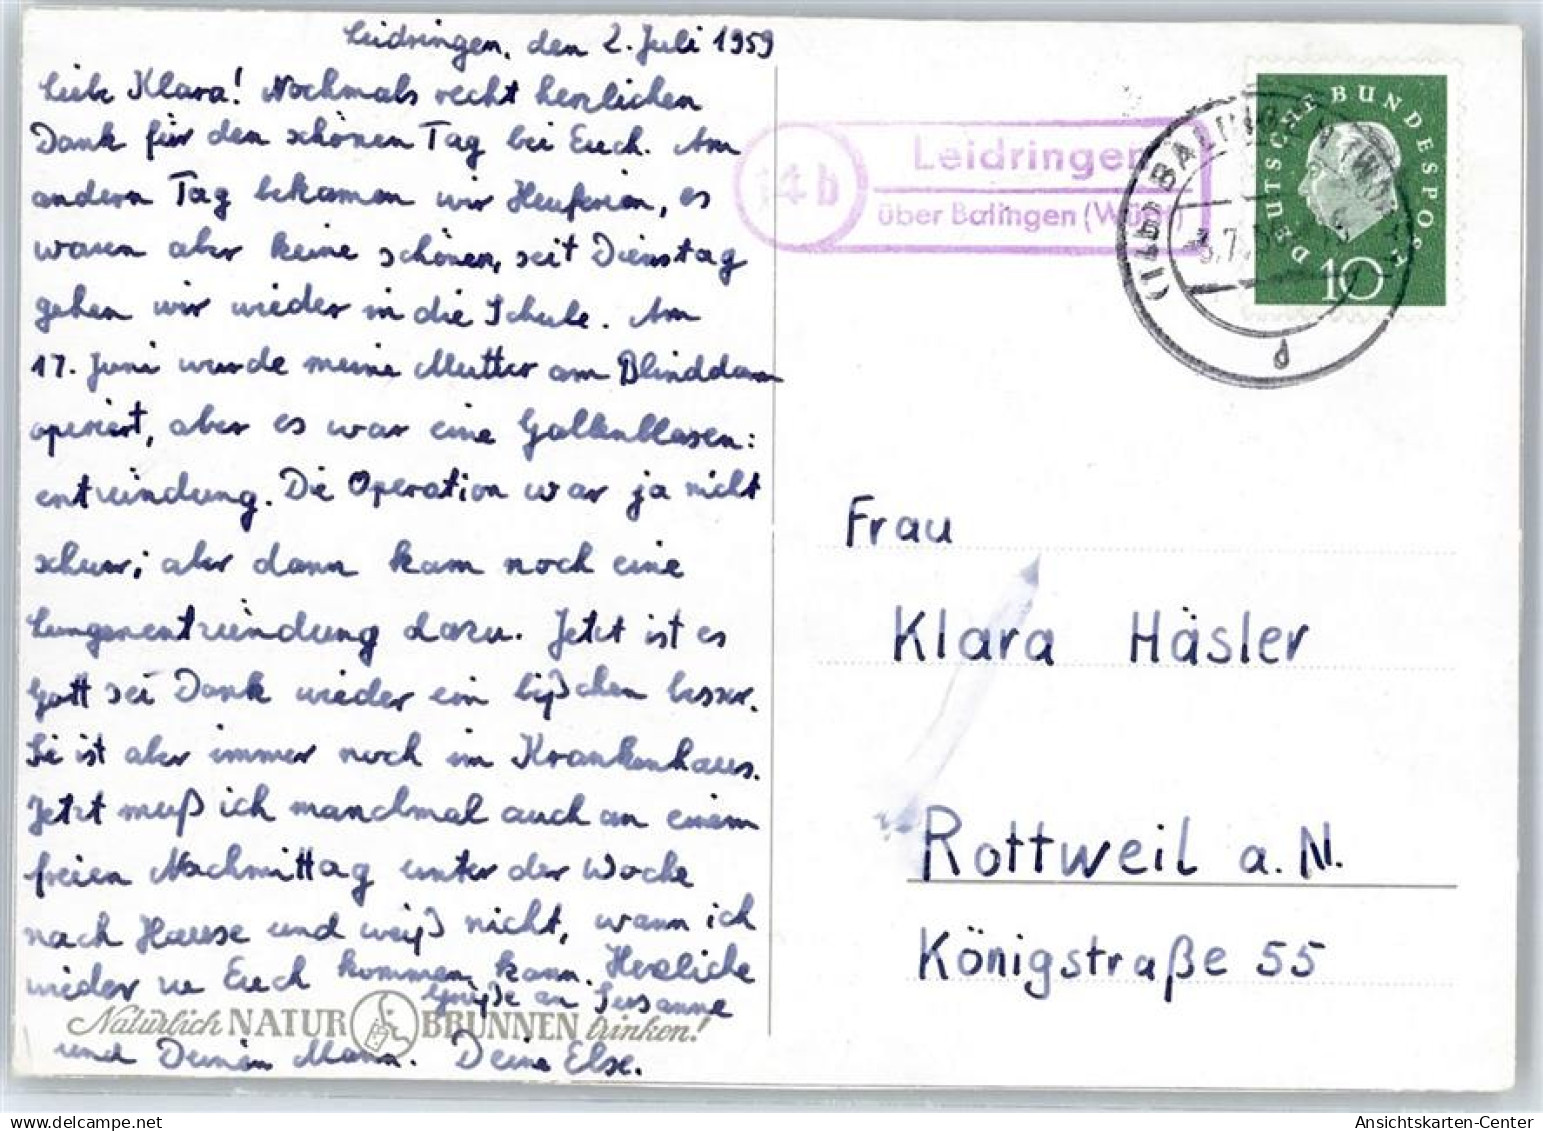 Leidringen, den 2. Juli 1959
Liebe Klara! Nochmals recht herzlichen
Dank für den schönen Tag bei Euch. Am
andern Tag bekamen wir Heuferien, es
waren aber keine schönen, seit Dienstag
gehen wir wieder in die Schule. Am
17. Juni wurde meine Mutter am Blinddarm
operiert, aber es war eine Gallenblasen:
entzündung. Die Operation war ja nicht
schwer, aber dann kam noch eine
Lungenentzündung dazu. Jetzt ist es
Gott sei Dank wieder ein bißchen besser.
Sie ist aber immer noch im Krankenhaus.
Jetzt muß ich manchmal auch an einem
freien Nachmittag unter der Woche
nach Hause und weiß nicht, wann ich
wieder zu Euch kommen kann. Herzliche
Grüße an Susanne
und Deinen Mann. Deine Else.
Natürlich NATUR BRUNNEN trinken!
14b
Leidringen
über Balingen (Württ)
(14b) BALINGEN (WÜRTT)
3.7.
d
DEUTSCHE BUNDESPOST
10
Frau
Klara Häsler
Rottweil a. N.
Königstraße 55
Ansichtskarten-Center